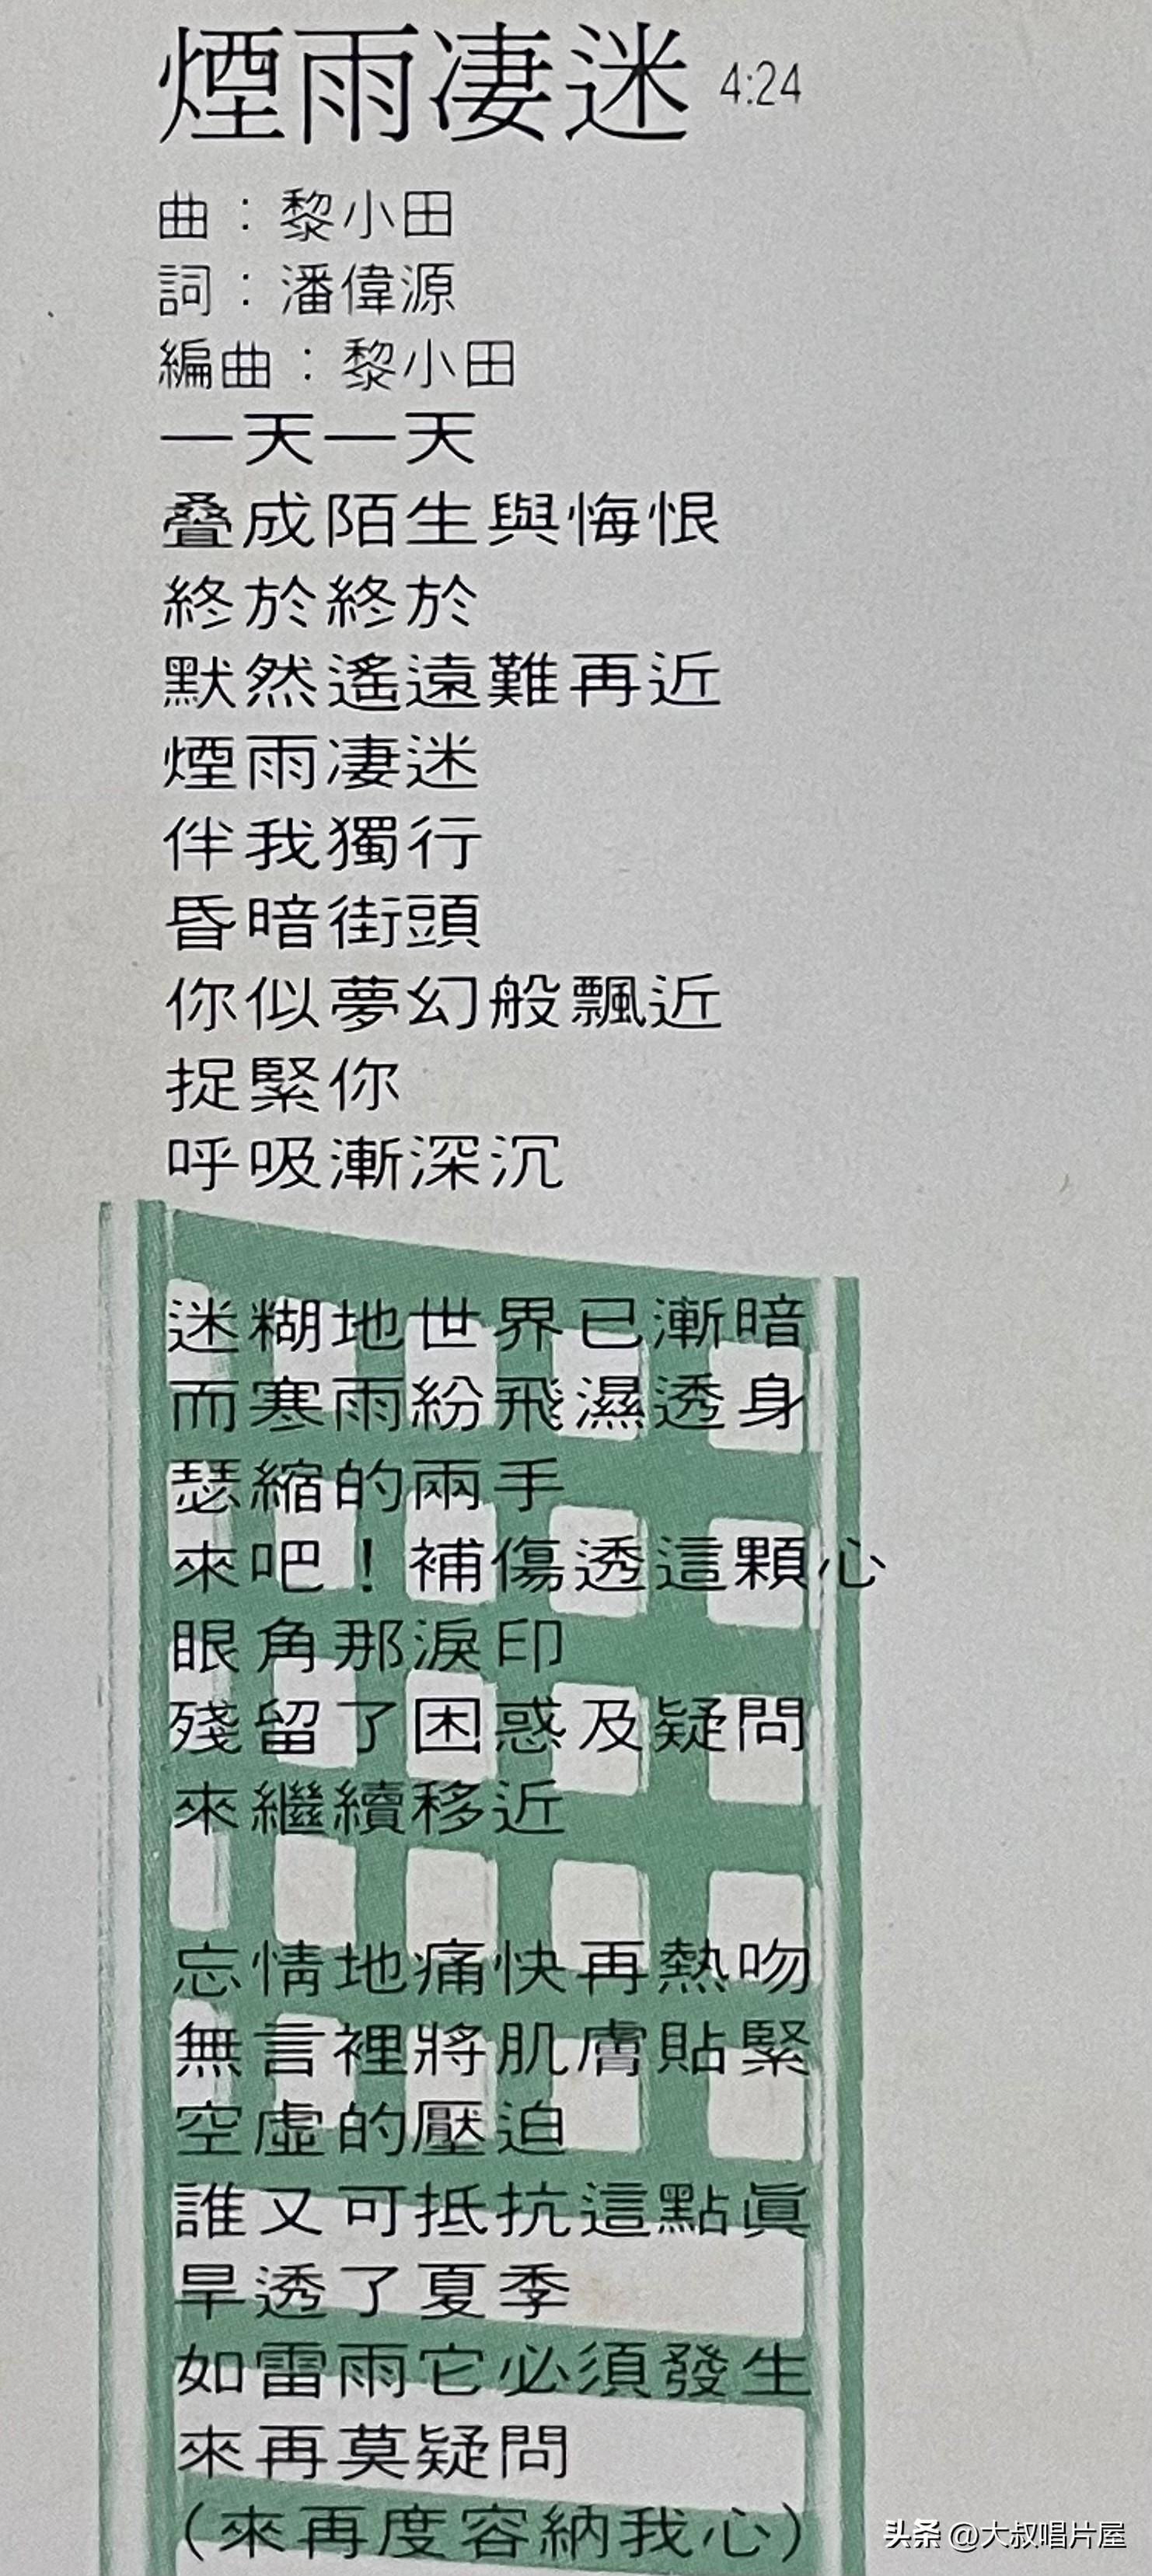 煙雨凄迷 4:24
曲：黎小田
詞：潘偉源
編曲：黎小田
一天一天
叠成陌生與悔恨
終於終於
默然遙遠難再近
煙雨凄迷
伴我獨行
昏暗街頭
你似夢幻般飄近
捉緊你
呼吸漸深沉
迷糊地世界已漸暗
而寒雨紛飛濕透身
瑟縮的兩手
來吧！補傷透這顆心
眼角那淚印
殘留了困惑及疑問
來繼續移近
忘情地痛快再熱吻
無言裡將肌膚貼緊
空虛的壓迫
誰又可抵抗這點眞
旱透了夏季
如雷雨它必須發生
來再莫疑問
（來再度容納我心）
头条 @大叔唱片屋